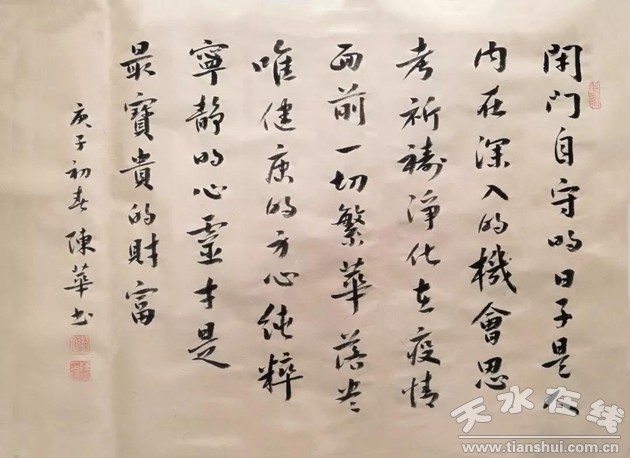 闭门自守的日子是人
内在深入的機會思
考祈禱淨化在疫情
面前一切繁華落尽
唯健康的方心純粹
寧靜的心靈才是
最寶貴的財富
庚子初春陳華书
天水在线
www.tianshui.com.cn